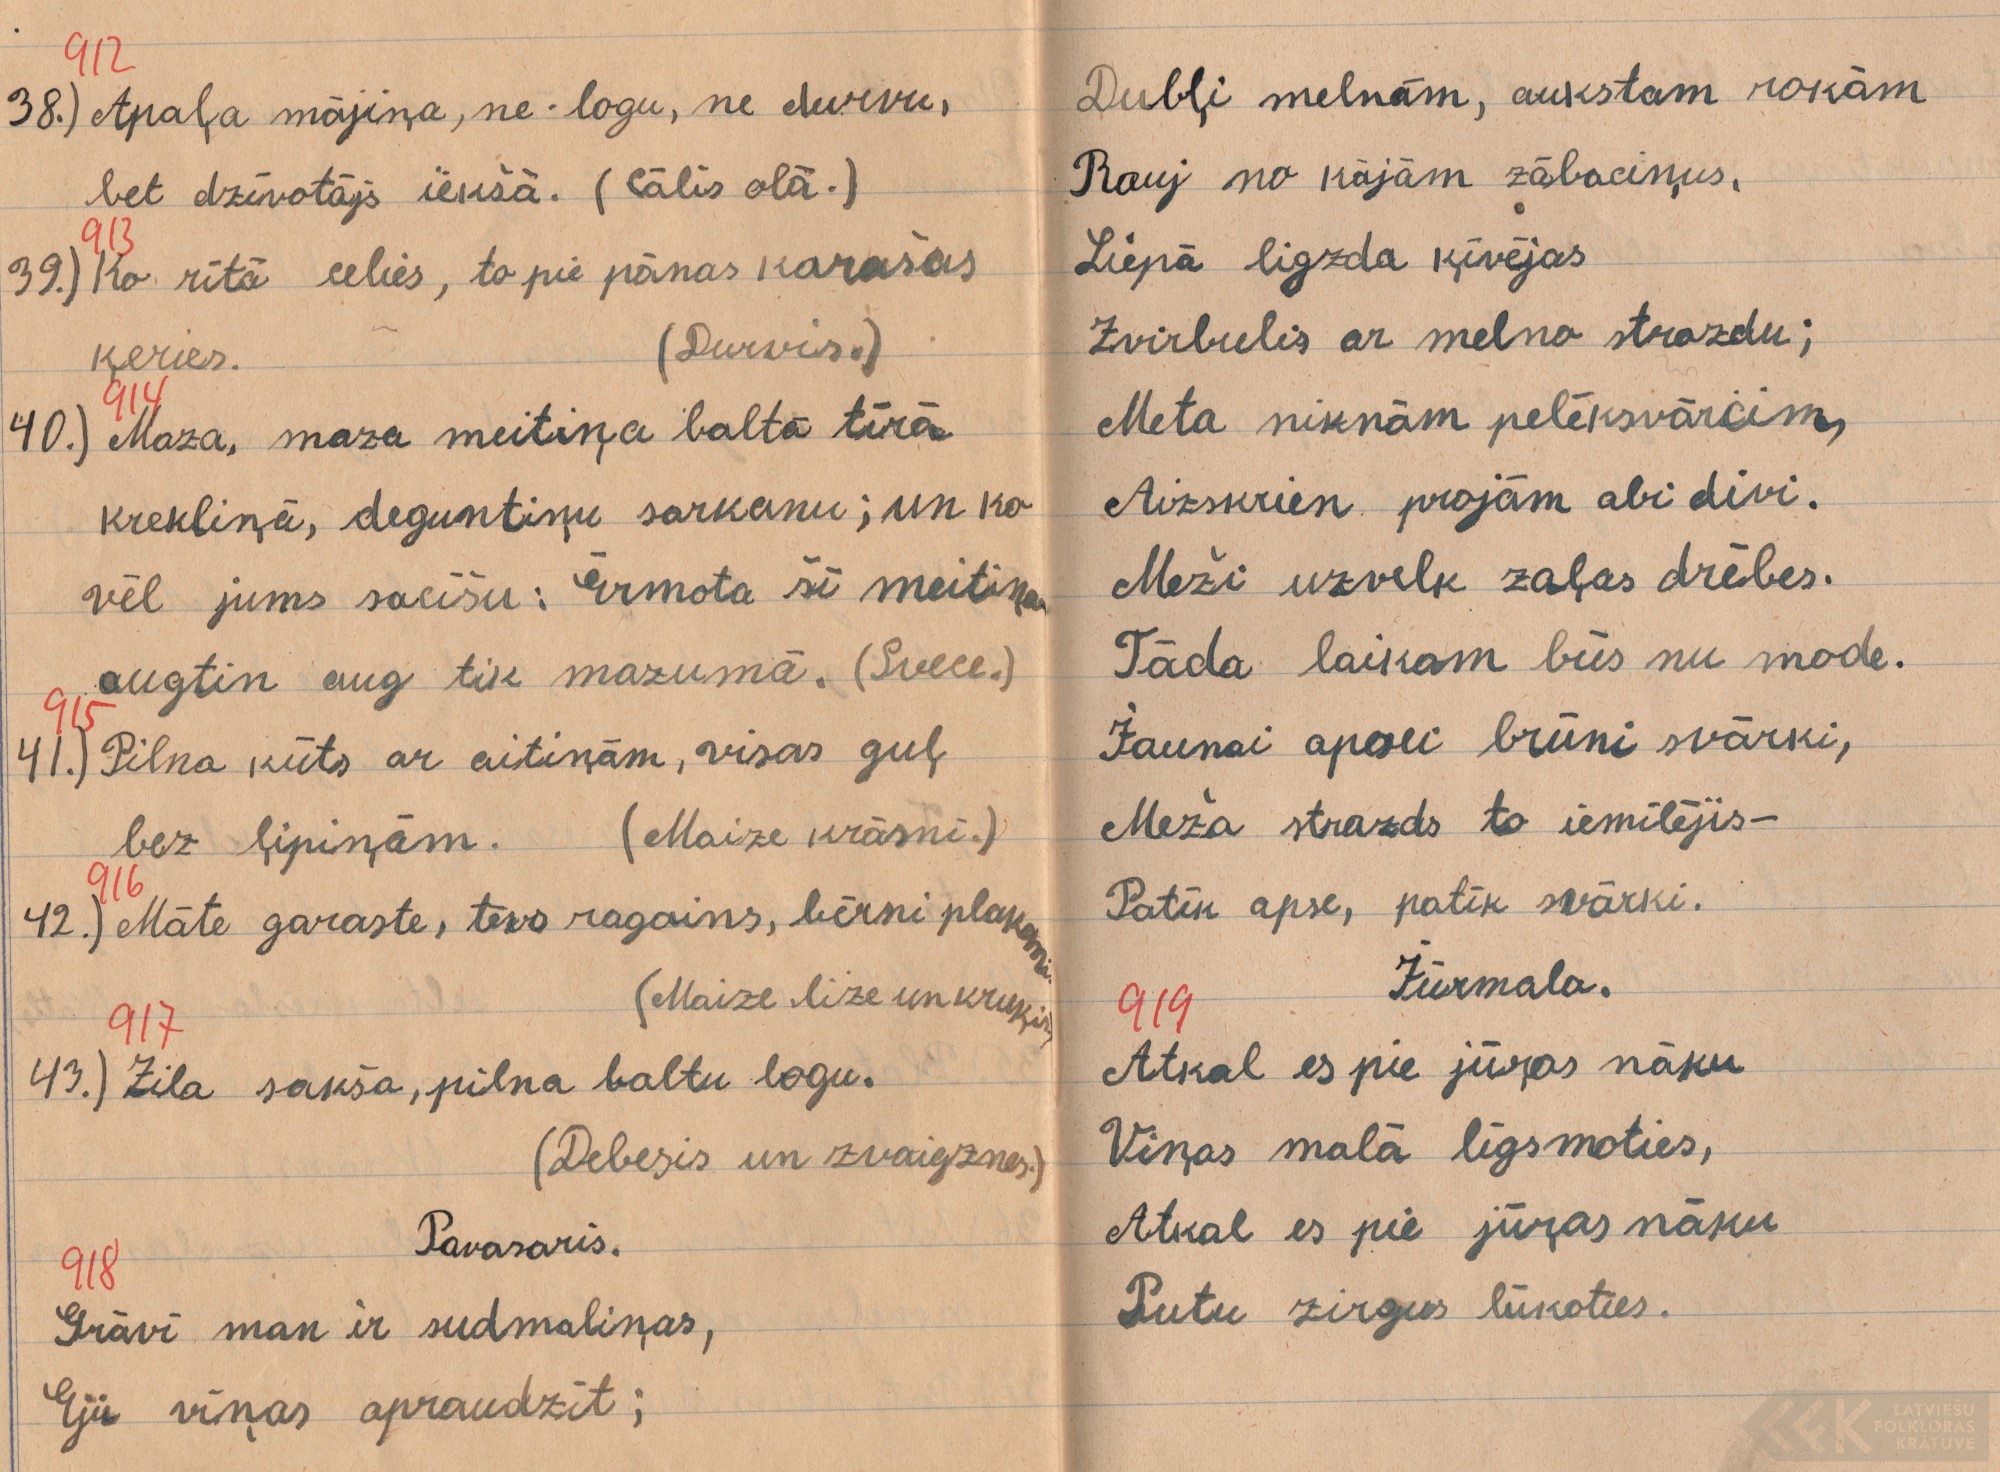 912
38.) Apaļa mājiņa, ne logu, ne durvu,
bet dzīvotājs iekšā. (Cālis olā.)
913
39.) Ko rītā celies, to pie pānas karašas
ķeries. (Durvis.)
914
40.) Maza, maza meitiņa baltā tīrā
krekliņā, deguntiņu sarkanu; un ko
vēl jums sacīšu: Ērmota šī meitiņa
augtin aug tik mazumā. (Svece.)
915
41.) Pilna kūts ar aitiņām, visas guļ
bez ļipiņām. (Maize krāsnī.)
916
42.) Māte garaste, tēvs ragains, bērni plakani.
(Maize lize un kruķis)
917
43.) Zila sakša, pilna baltu logu.
(Debesis un zvaigznes.)
Pavasaris.
918
Grāvī man ir sudmaliņas,
Eju viņas apraudzīt;
Dubļi melnām, aukstam rokām
Rauj no kājām zābaciņus,
Liepā ligzda ķīvējas
Zvirbulis ar melno strazdu;
Meta niknām pelēksvārcim,
Aizskrien projām abi divi.
Meži uzvelk zaļas drēbes.
Tāda laikam būs nu mode.
Jaunai apsei brūni svārki,
Meža strazds to iemīlējis-
Patīk apse, patīk svārki.
Jūrmala.
919
Atkal es pie jūŗas nāku
Viņas malā līgsmoties,
Atkal es pie jūŗas nāku
Putu zirgus lūkoties.
LATVIEŠU
FOLKLORAS
KRĀTUVE